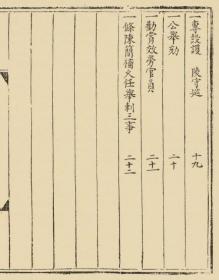 一專設護　陵守巡　十九
一公舉劾　二十
一勸賞效勞官員　二十一
一條陳簡備久任舉刺三事　二十二